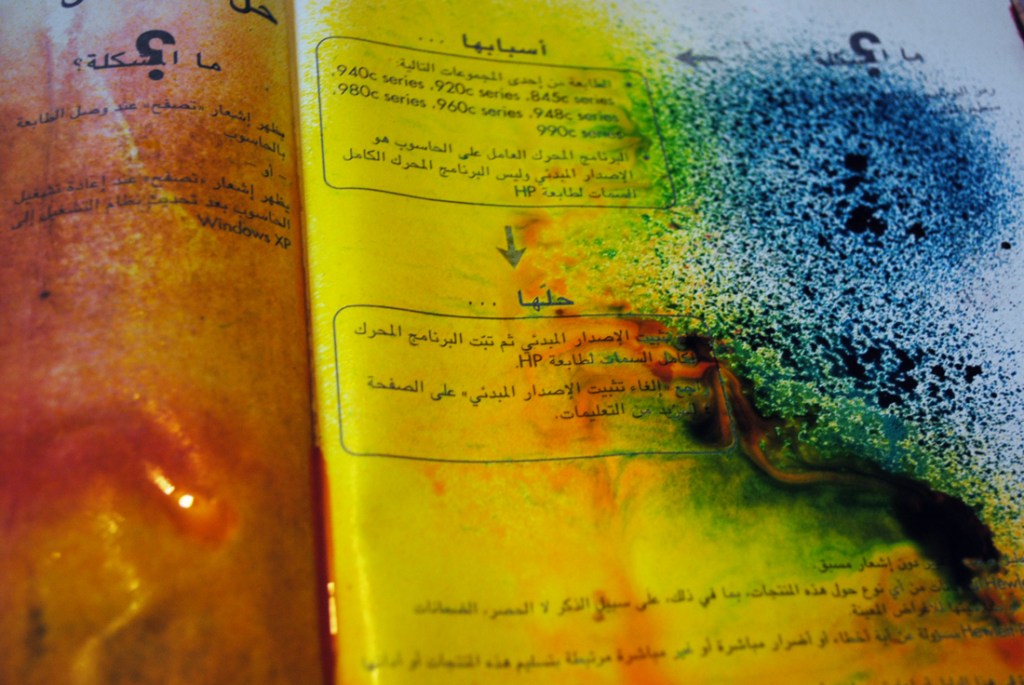 حل
ما المشكلة؟
يظهر إشعار «تصفح» عند وصل الطابعة
بالحاسوب.
– أو –
يظهر إشعار «تصفح» عند إعادة تشغيل
الحاسوب بعد تحديث نظام التشغيل إلى
Windows XP
أسبابها ...
الطابعة من إحدى المجموعات التالية:
940c series، 920c series، 845c series،
980c series، 960c series، 948c series،
990c series
البرنامج المحرك العامل على الحاسوب هو
الإصدار المبدئي وليس البرنامج المحرك الكامل
السمات لطابعة HP
ما المشكلة؟
حلّها ...
تثبيت الإصدار المبدئي ثم ثبّت البرنامج المحرك
الكامل السمات لطابعة HP.
راجع «إلغاء تثبيت الإصدار المبدئي» على الصفحة
لمزيد من التعليمات.
دون إشعار مسبق.
من أي نوع حول هذه المنتجات، بما في ذلك، على سبيل الذكر لا الحصر، الضمانات
للأغراض المعينة.
مسؤولة عن أية أخطاء، أو أضرار مباشرة أو غير مباشرة مرتبطة بتسليم هذه المنتجات أو أدائها